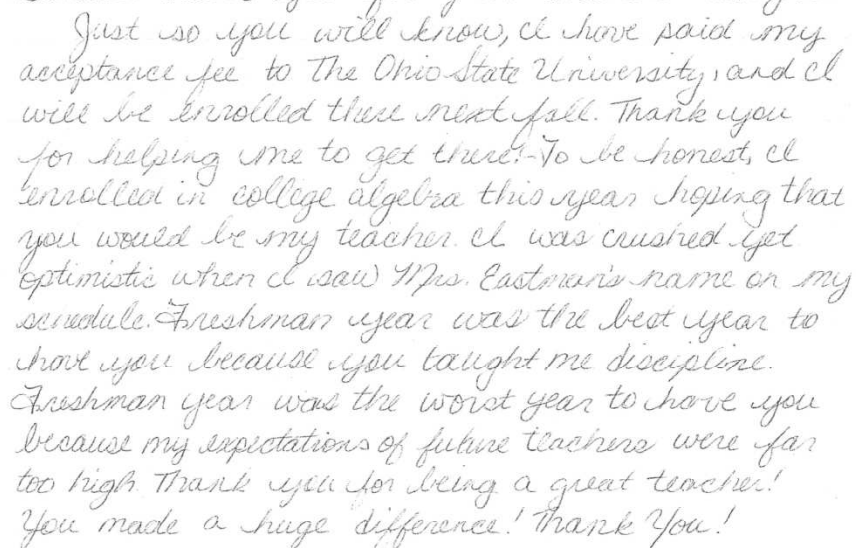 Just so you will know, I have paid my
acceptance fee to The Ohio State University, and I
will be enrolled there next fall. Thank you
for helping me to get there! To be honest, I
enrolled in college algebra this year hoping that
you would be my teacher. I was crushed yet
optimistic when I saw Mrs. Eastman's name on my
schedule. Freshman year was the best year to
have you because you taught me discipline.
Freshman year was the worst year to have you
because my expectations of future teachers were far
too high. Thank you for being a great teacher!
You made a huge difference! Thank You!